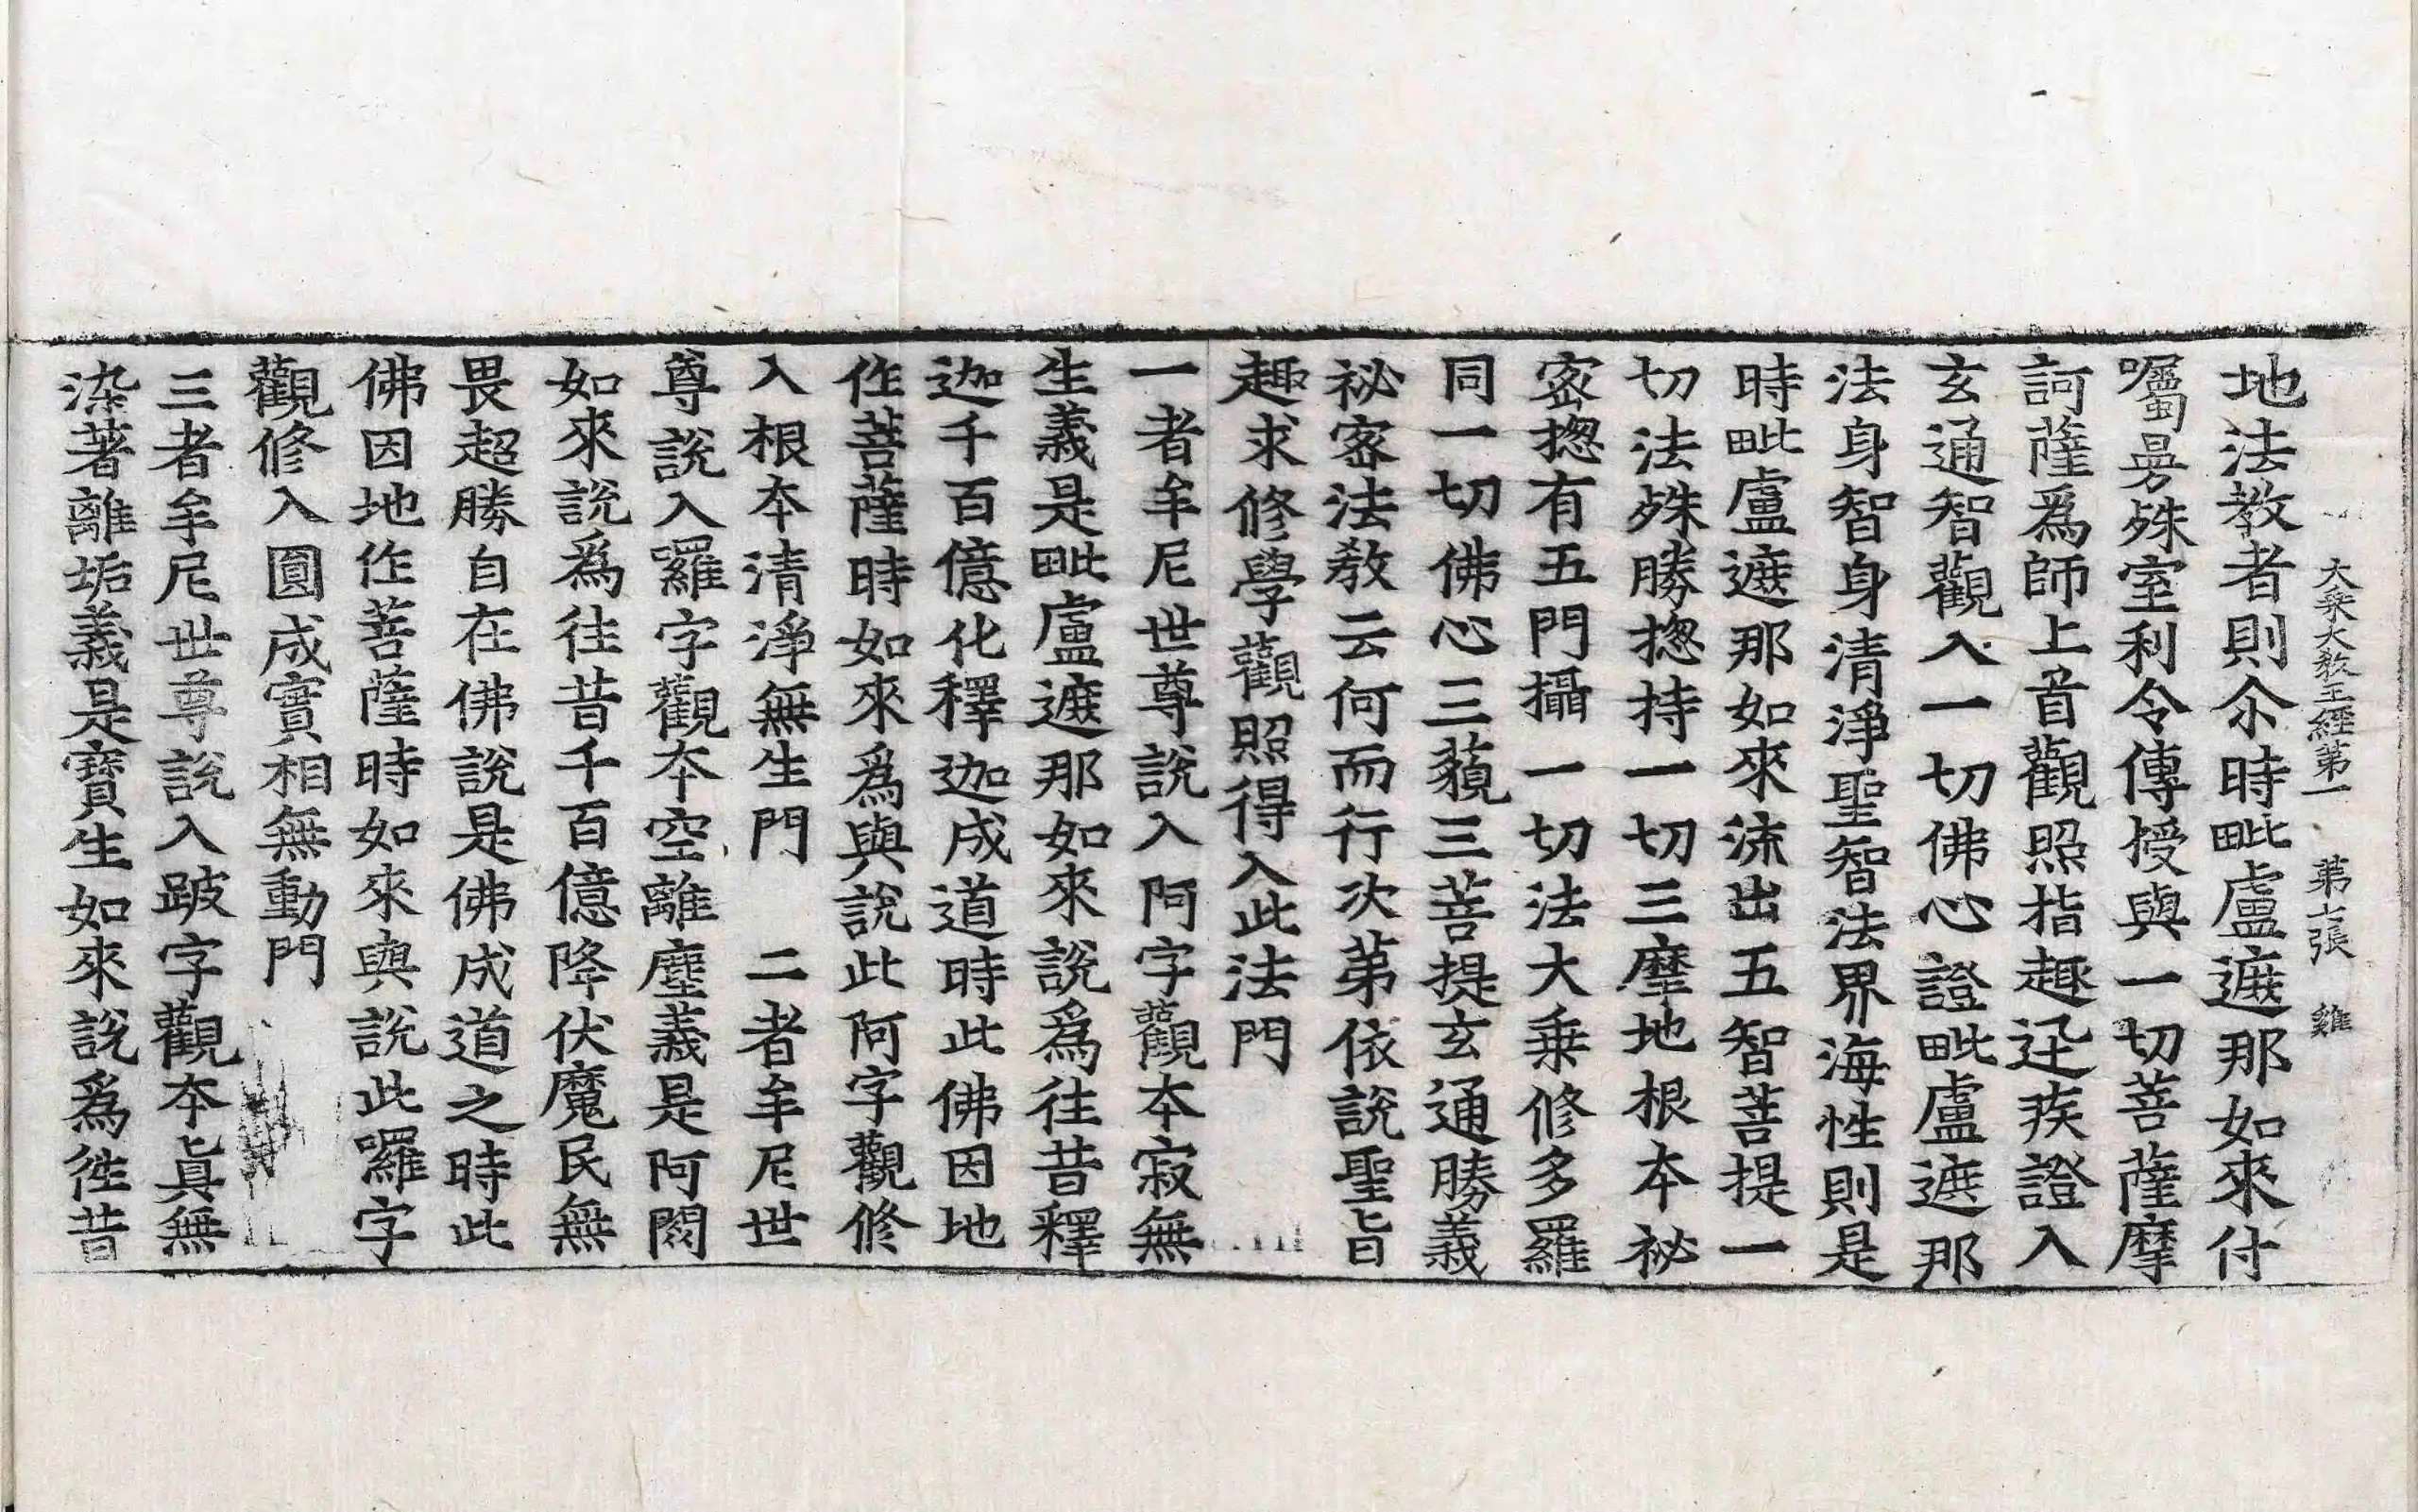 大乘大教王經第一　第七張　雞
地法教者則尒時毗盧遮那如來付
囑曼殊室利令傳授與一切菩薩摩
訶薩爲師上首觀照指趣迅疾證入
玄通智觀入一切佛心證毗盧遮那
法身智身清淨聖智法界海性則是
時毗盧遮那如來流出五智菩提一
切法殊勝揔持一切三摩地根本祕
密揔有五門攝一切法大乗修多羅
同一切佛心三藐三菩提玄通勝義
祕密法教云何而行次第依說聖旨
趣求修學觀照得入此法門
一者牟尼世尊說入阿字觀本寂無
生義是毗盧遮那如來說爲往昔釋
迦千百億化釋迦成道時此佛因地
作菩薩時如來爲與說此阿字觀修
入根本清淨無生門　二者牟尼世
尊說入囉字觀本空離塵義是阿閦
如來說爲往昔千百億降伏魔民無
畏超勝自在佛說是佛成道之時此
佛因地作菩薩時如來與說此囉字
觀修入圓成實相無動門
三者牟尼世尊說入跛字觀本眞無
染著離垢義是寶生如來說爲徃昔